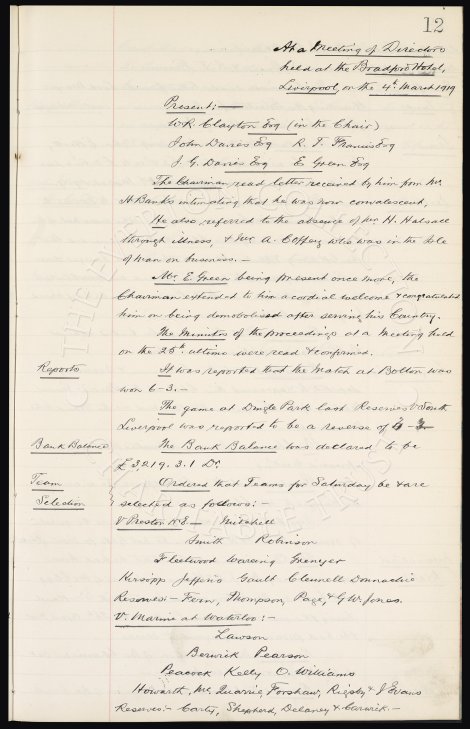 12
At a Meeting of Directors
held at the Bradford Hotel,
Liverpool, on the 4th March 1919
Present:—
W.R. Clayton Esq (in the Chair)
John Davies Esq R. J. Francis Esq
J. G. Davies Esq E Green Esq
The Chairman read letter received by him from Mr
H Banks intimating that he was now convalescent,
He also referred to the absence of Mr H. Halsall
through illness, & Mr A. Coffey who was in the Isle
of Man on business. —
Mr. E. Green being present once more, the
Chairman extended to him a cordial welcome & congratulated
him on being demobolised after serving his Country.
The Minutes of the proceedings at a Meeting held
on the 25th ultimo were read & confirmed.
Reports
It was reported that the Match at Bolton was
won 6-3. —
The game at Dingle Park last Reserves V South
Liverpool was reported to be a reverse of
Bank Balance
The Bank Balance was declared to be
£3219. 3. 1 Dr.
Team
Selection
Ordered that Teams for Saturday be & are
selected as follows:—
V Preston N.E — Mitchell
Smith Robinson
Fleetwood Wareing Grenyer
Kirsopp Jefferis Gault Clennell Donnachie
Reserves:— Fern, Thompson, Page, & G W. Jones.
V. Marine at Waterloo:—
Lawson
Berwick Pearson
Peacock Kelly O. Williams
Howarth, McQuarrie, Forshaw, Rigsby & J Evans
Reserves:— Carty, Shepherd, Delaney & Curwick. —